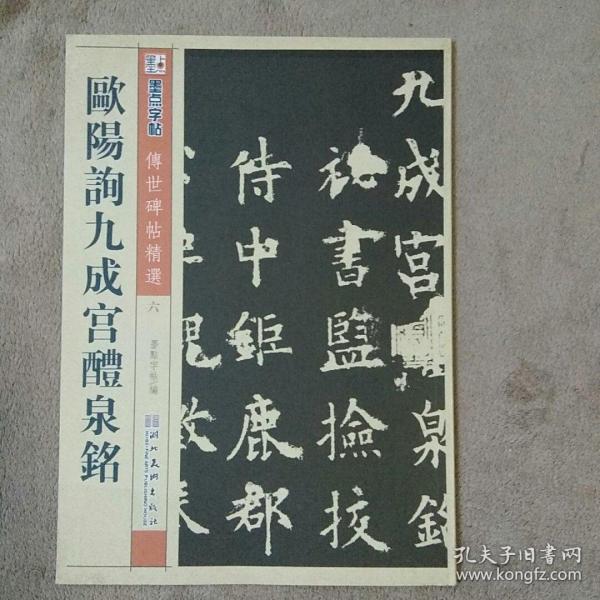 歐陽詢九成宮醴泉銘
墨点字帖
傳世碑帖精選
六
墨點字帖編
湖北美術出版社
HUBEI FINE ARTS PUBLISHING HOUSE
九成宮
泉銘
祕書監撿挍
侍中鉅鹿郡
孔夫子旧书网
www.kongfz.com